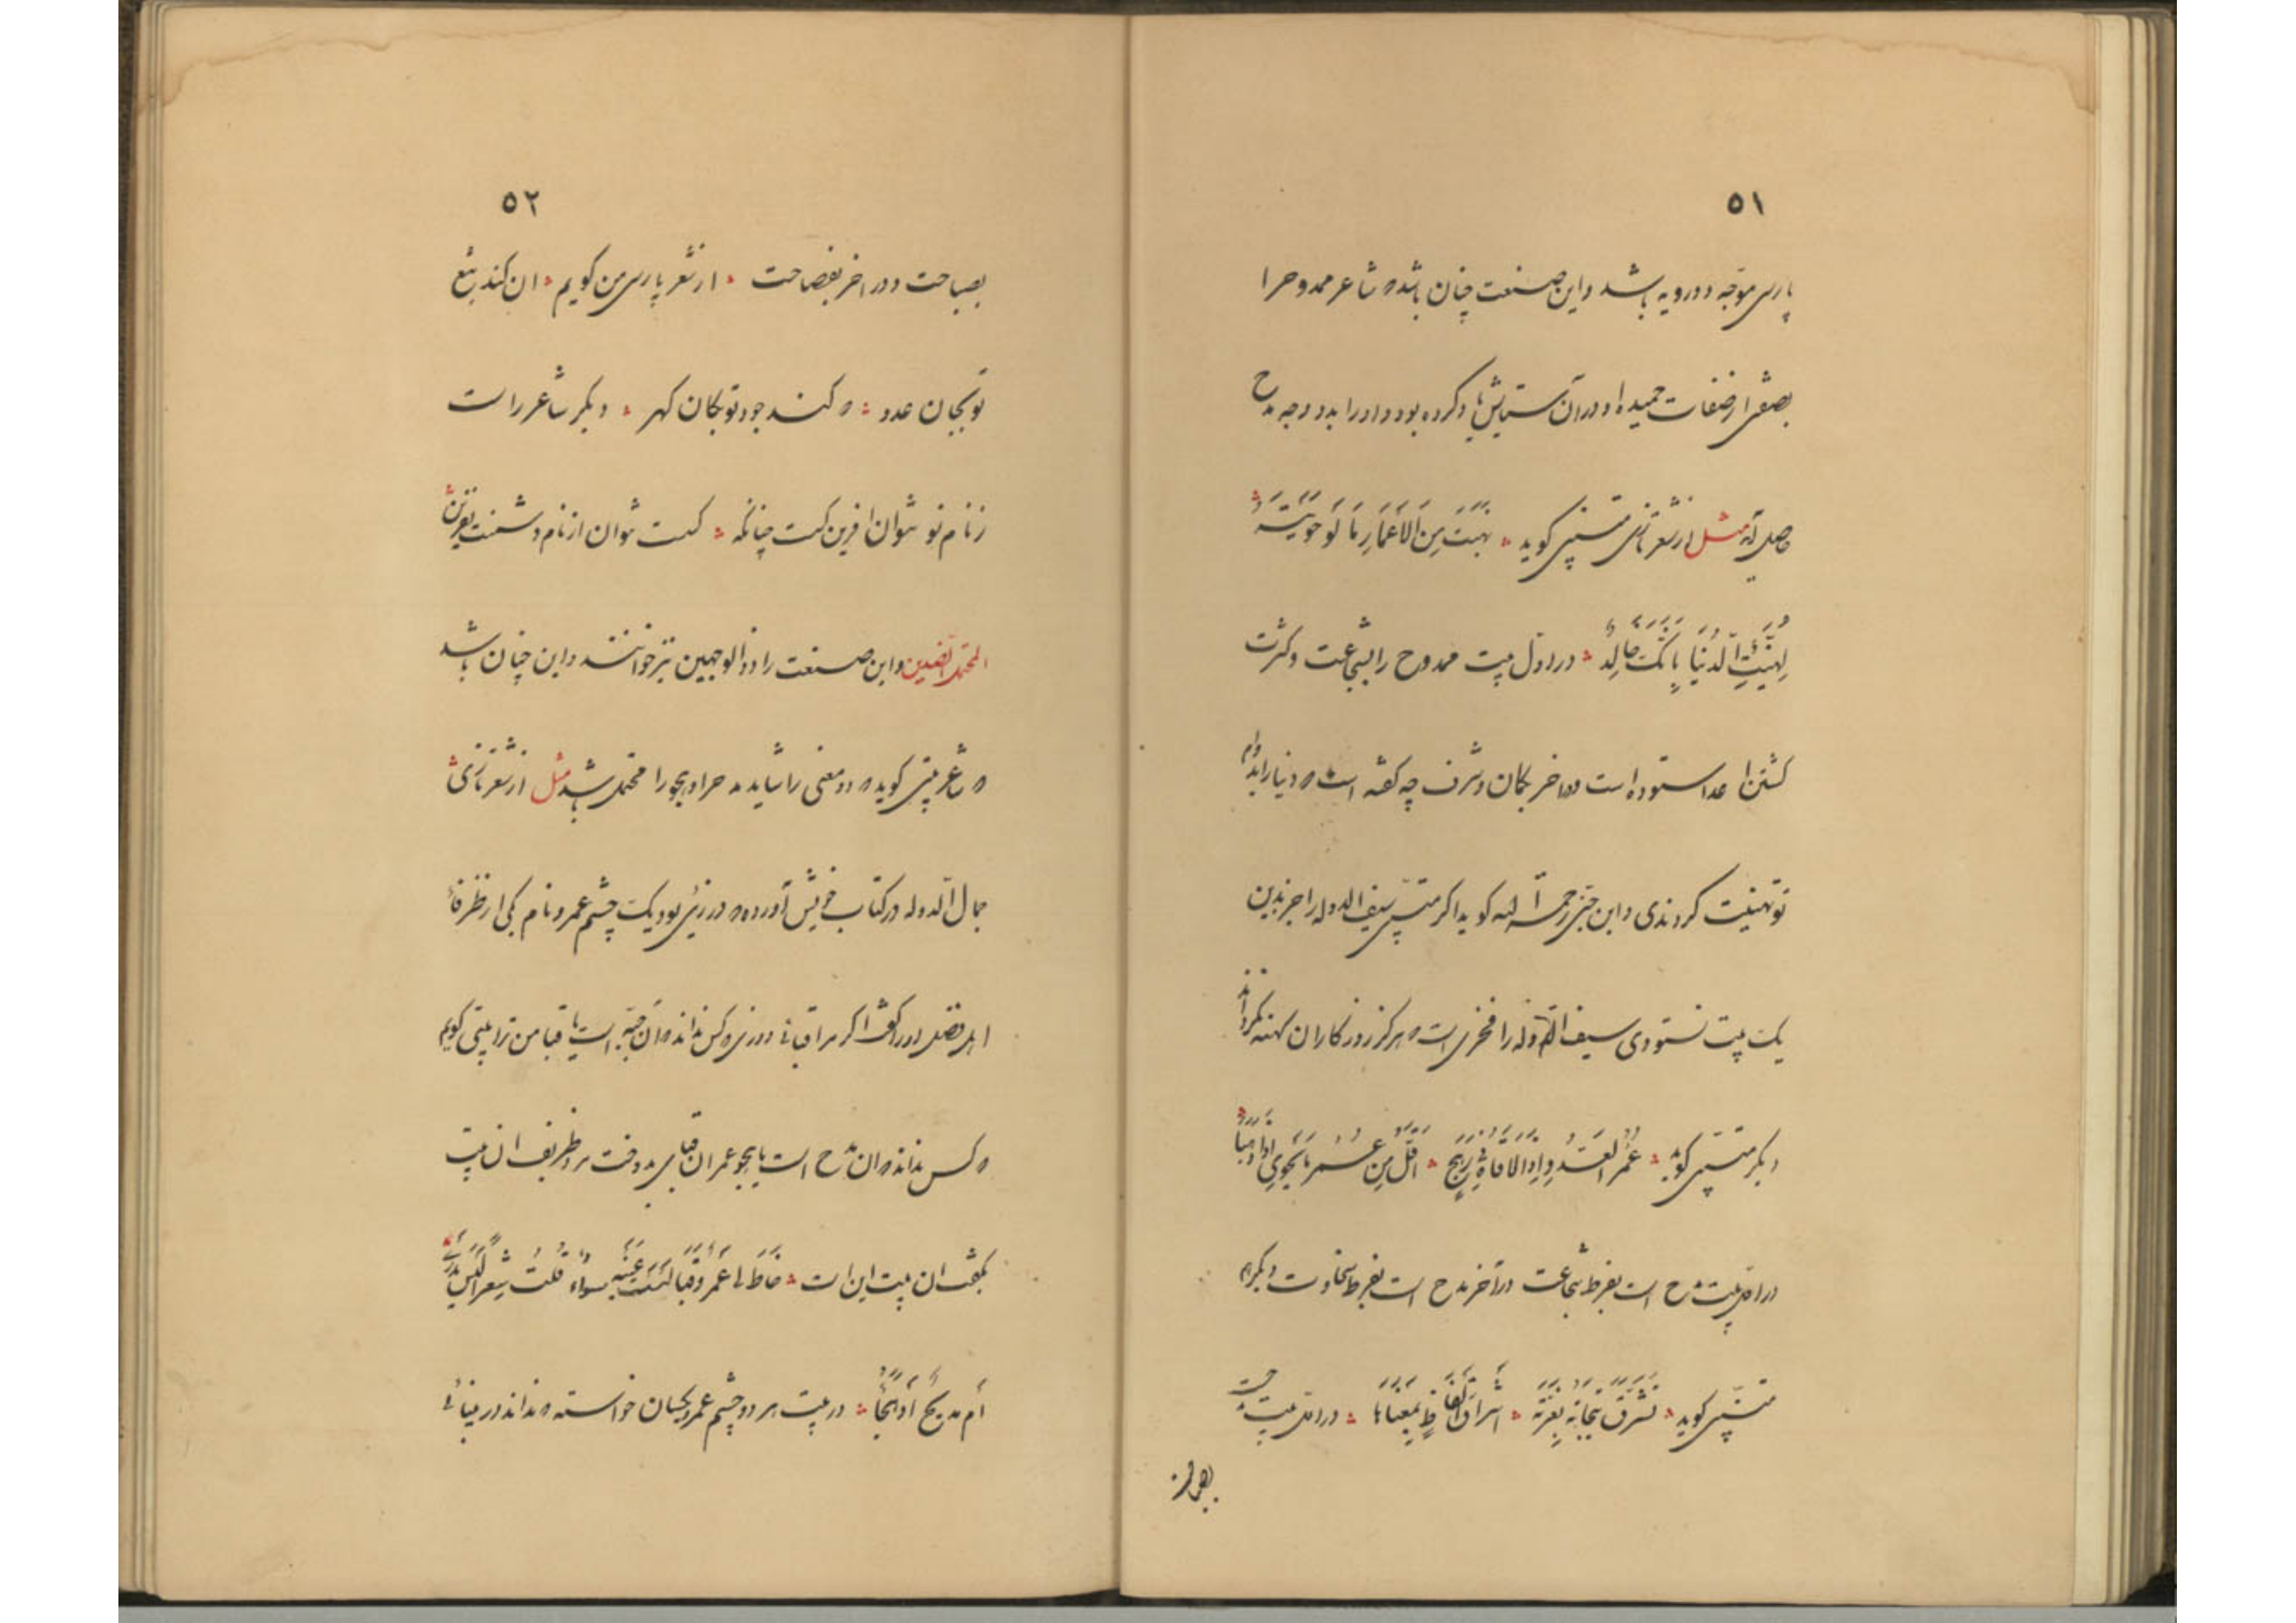 ۵۱
پارسی موجه دو رویه باشد و این صنعت چنان باشد که شاعر ممدوح را
بصفتی از صفات حمیده او در آن ستایش یاد کرده بود و او را بدو وجه مدح
حاصل آید مثل از شعر تازی متنبی کوید نَهَبْتَ مِنَ الأَعْمَارِ مَا لَوْ حَوَيْتَهُ
لَهُنِّئَتِ الدُّنْيَا بِأَنَّكَ خَالِدُ در اول بیت ممدوح را بشجاعت و کثرت
کشتن اعدا ستوده است و در آخر بکمال و شرف چه کفته است که دنیا را بدوام
تو تهنیت کردندی و ابن جنی رحمه الله کوید اکر متنبی سیف الدوله را جز بدین
یک بیت نستودی سیف الدوله را فخری است که هرکز روزکاران کهنه نکرداند
دیکر متنبی کوید عُمْرُ العَدُوِّ إِذَا لاقَاهُ فِي رَهَجٍ أَقَلُّ مِنْ عُمْرِ مَا يَحْوِي إِذَا وَهَبَا
در اول بیت مدح است بفرط شجاعت و در آخر مدح است بفرط سخاوت دیکر هم
متنبی کوید تُشْرِقُ تِيجَانُهُ بِغُرَّتِهِ إِشْرَاقَ أَلْفَاظِهِ بِمَعْنَاهَا در اول بیت مدحست
۵۲
بصباحت و در آخر بفصاحت از شعر پارسی من کویم آن کند تیغ
تو بجان عدو که کند جود تو بکان کهر دیکر شاعر راست
ز نام تو نتوان آفرین کسست چنانکه کسست نتوان از نام دشمنت نفرین
المحتمل الضدین و این صنعت را ذو الوجهین نیز خوانند و این چنان باشد
که شاعر بیتی کوید که دو معنی را شاید مدح را و هجو را محتمل باشد مثل از شعر تازی
جمال الدوله در کتاب خویش آورده که درزیی بود یکچشم عمرو نام یکی از ظرفاء
اهل فضل او را کفت اکر مرا قبائی دوزی که کس نداند که آن جبه است یا قبا من ترا بیتی کویم
که کس نداند که آن مدح است یا هجو عمر آن قبا بدوخت مرد ظریف آن بیت
بکفت آن بیت این است خَاطَ لِي عَمْرٌو قَبَا لَيْتَ عَيْنَيْهِ سَوَاء قُلْتُ شِعْرًا لَيْسَ يُدْرَى
أَمْ مَدِيحٌ أَوْ هِجَا در بیت هر دو چشم عمرو یکسان خواسته که نداند در بینائی